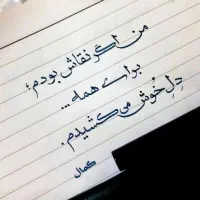 من اگر نقاش بودم؛
برای همه...
دِلِ خُوش می کشیدم.
کمال